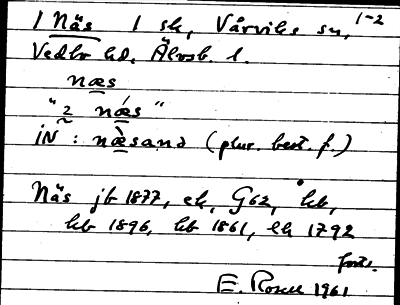 1-2
1 Näs 1 sk, Vårviks sn,
Vedbo hd, Älvsb. l.
næs
"2 næ̀s"
iN: næ̀sanə (plur. best. f.)
Näs jb 1877, ek, G62, hk,
kb 1896, kb 1861, lk 1792
forts.
E. Rosell 1961